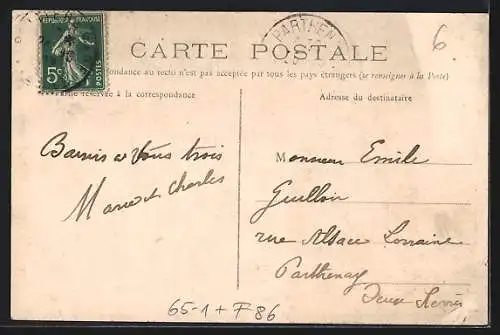 REPUBLIQUE FRANÇAISE
5c
POSTES
PARTHEN
6
CARTE POSTALE
ondance au recto n'est pas acceptée par tous les pays étrangers (se renseigner à la Poste)
réservée à la correspondance
Adresse du destinataire
vous trois
Marie et Charles
Monsieur Emile
rue Alsace Lorraine
Parthenay
Deux Sèvres
65-1 + F 86